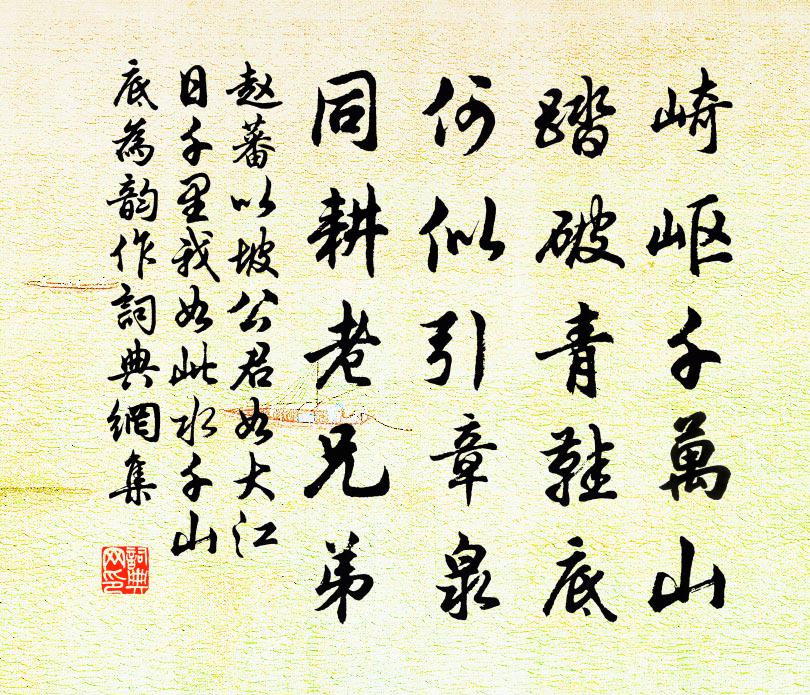 崎岖千萬山
踏破青鞋底
何似引章泉
同耕老兄弟
赵蕃以坡公君如大江
日千里我如此水千山
底為韵作詞典網集
詞典网印